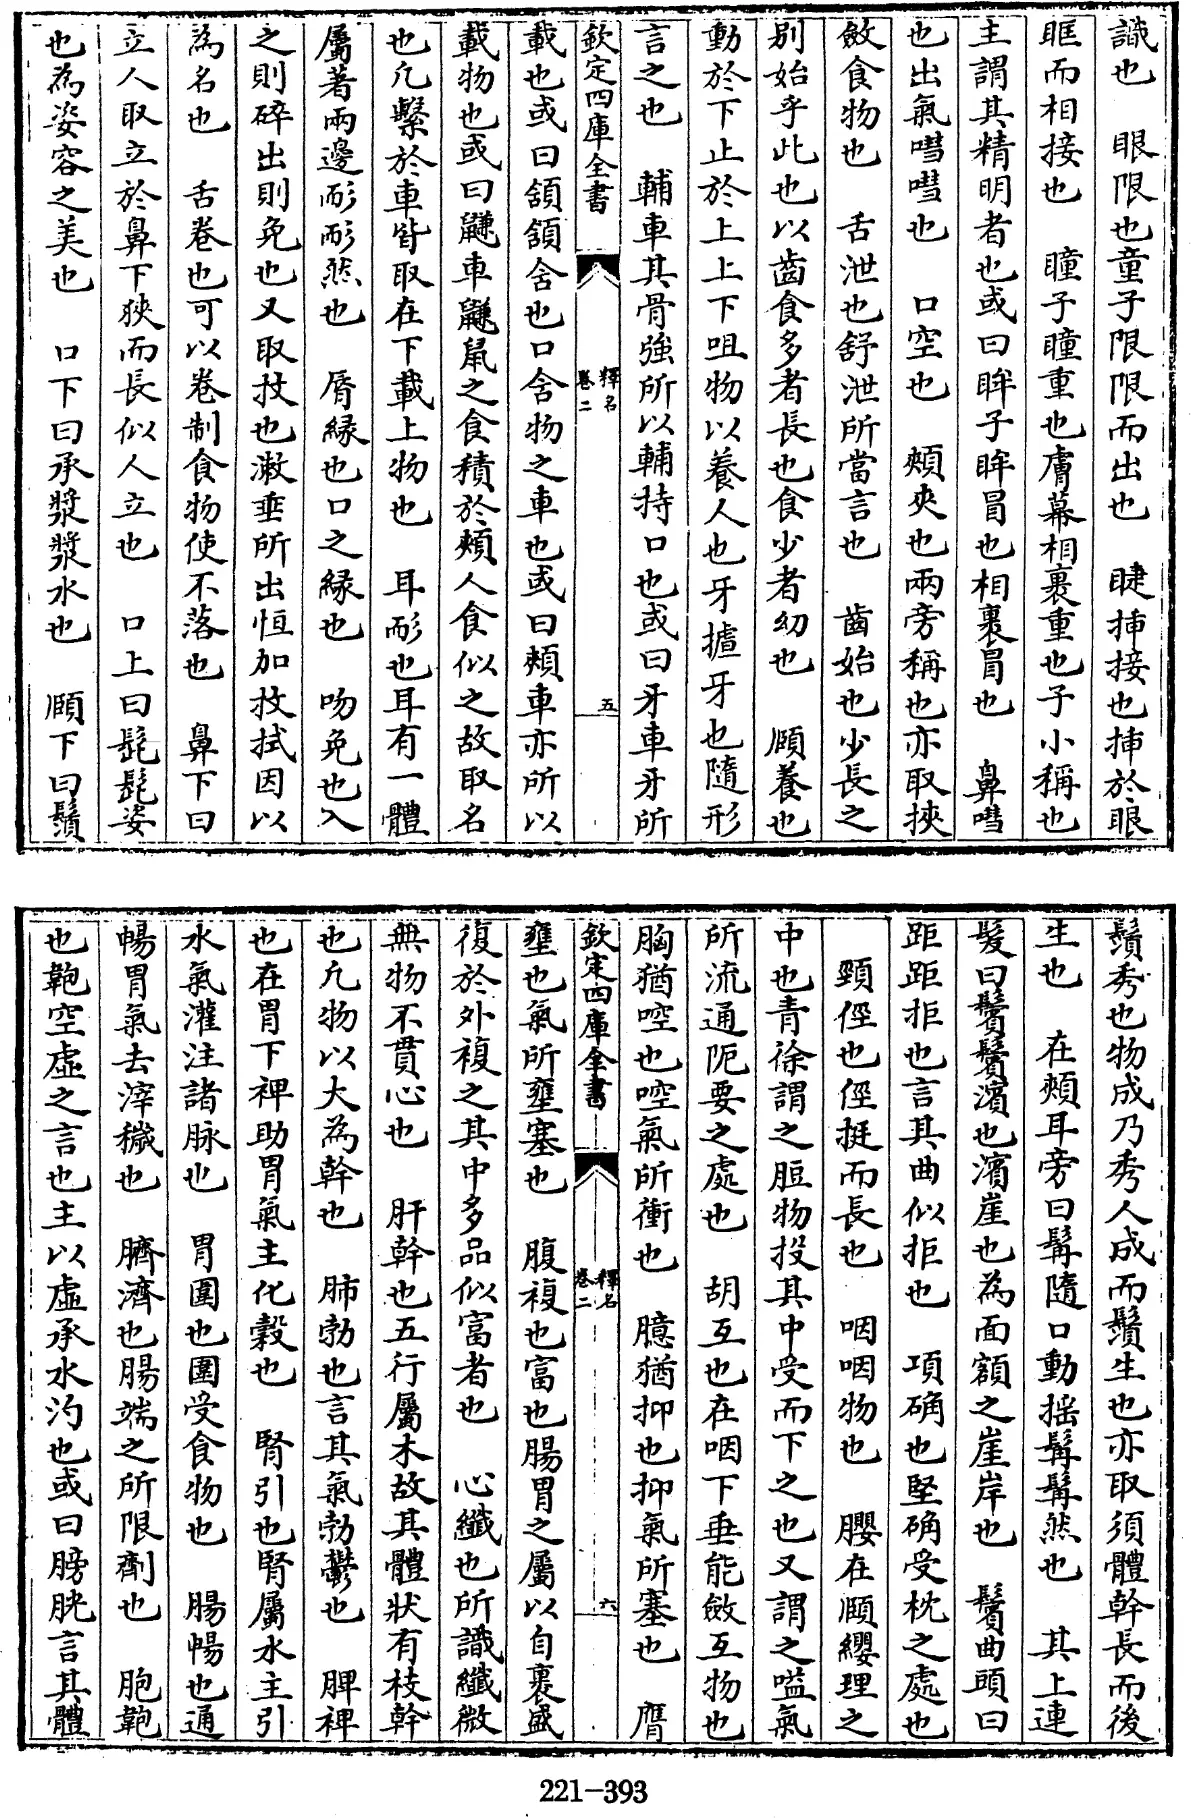 識也　眼限也童子限限而出也　睫挿接也挿於眼
眶而相接也　瞳子瞳重也膚幕相裹重也子小稱也
主謂其精明者也或曰眸子眸冒也相裹冒也　鼻嘒
也出氣嘒嘒也　口空也　頰夾也兩旁稱也亦取挾
斂食物也　舌泄也舒泄所當言也　齒始也少長之
别始乎此也以齒食多者長也食少者幼也　頤養也
動於下止於上上下咀物以養人也牙摣牙也隨形
言之也　輔車其骨強所以輔持口也或曰牙車牙所
欽定四庫全書　釋名　卷二　五
載也或曰頷頷含也口含物之車也或曰頰車亦所以
載物也或曰鼸車鼸鼠之食積於頰人食似之故取名
也凡繫於車皆取在下載上物也　耳耏也耳有一體
屬著兩邊耏耏然也　脣緣也口之緣也　吻免也入
之則碎出則免也又取抆也漱唾所出恒加抆拭因以
為名也　舌卷也可以卷制食物使不落也　鼻下曰
立人取立於鼻下狹而長似人立也　口上曰髭髭姿
也為姿容之美也　口下曰承漿漿水也　頤下曰鬚
鬚秀也物成乃秀人成而鬚生也亦取須體幹長而後
生也　在頰耳旁曰髯隨口動揺髯髯然也　其上連
髮曰鬢鬢濱也濱崖也為面額之崖岸也　鬢曲頭曰
距距拒也言其曲似拒也　項确也堅确受枕之處也
頸俓也俓挺而長也　咽咽物也　䐨在頤纓理之
中也青徐謂之脰物投其中受而下之也又謂之嗌氣
所流通阨要之處也　胡互也在咽下垂能斂互物也
胸猶啌也啌氣所衝也　臆猶抑也抑氣所塞也　膺
欽定四庫全書　釋名　卷二　六
壅也氣所壅塞也　腹複也富也腸胃之屬以自裹盛
復於外複之其中多品似富者也　心纖也所識纖微
無物不貫心也　肝幹也五行屬木故其體狀有枝幹
也凡物以大為幹也　肺勃也言其氣勃鬱也　脾裨
也在胃下裨助胃氣主化穀也　腎引也腎屬水主引
水氣灌注諸脉也　胃圍也圍受食物也　腸暢也通
暢胃氣去滓穢也　臍濟也腸端之所限劑也　胞鞄
也鞄空虛之言也主以虛承水汋也或曰膀胱言其體
221-393